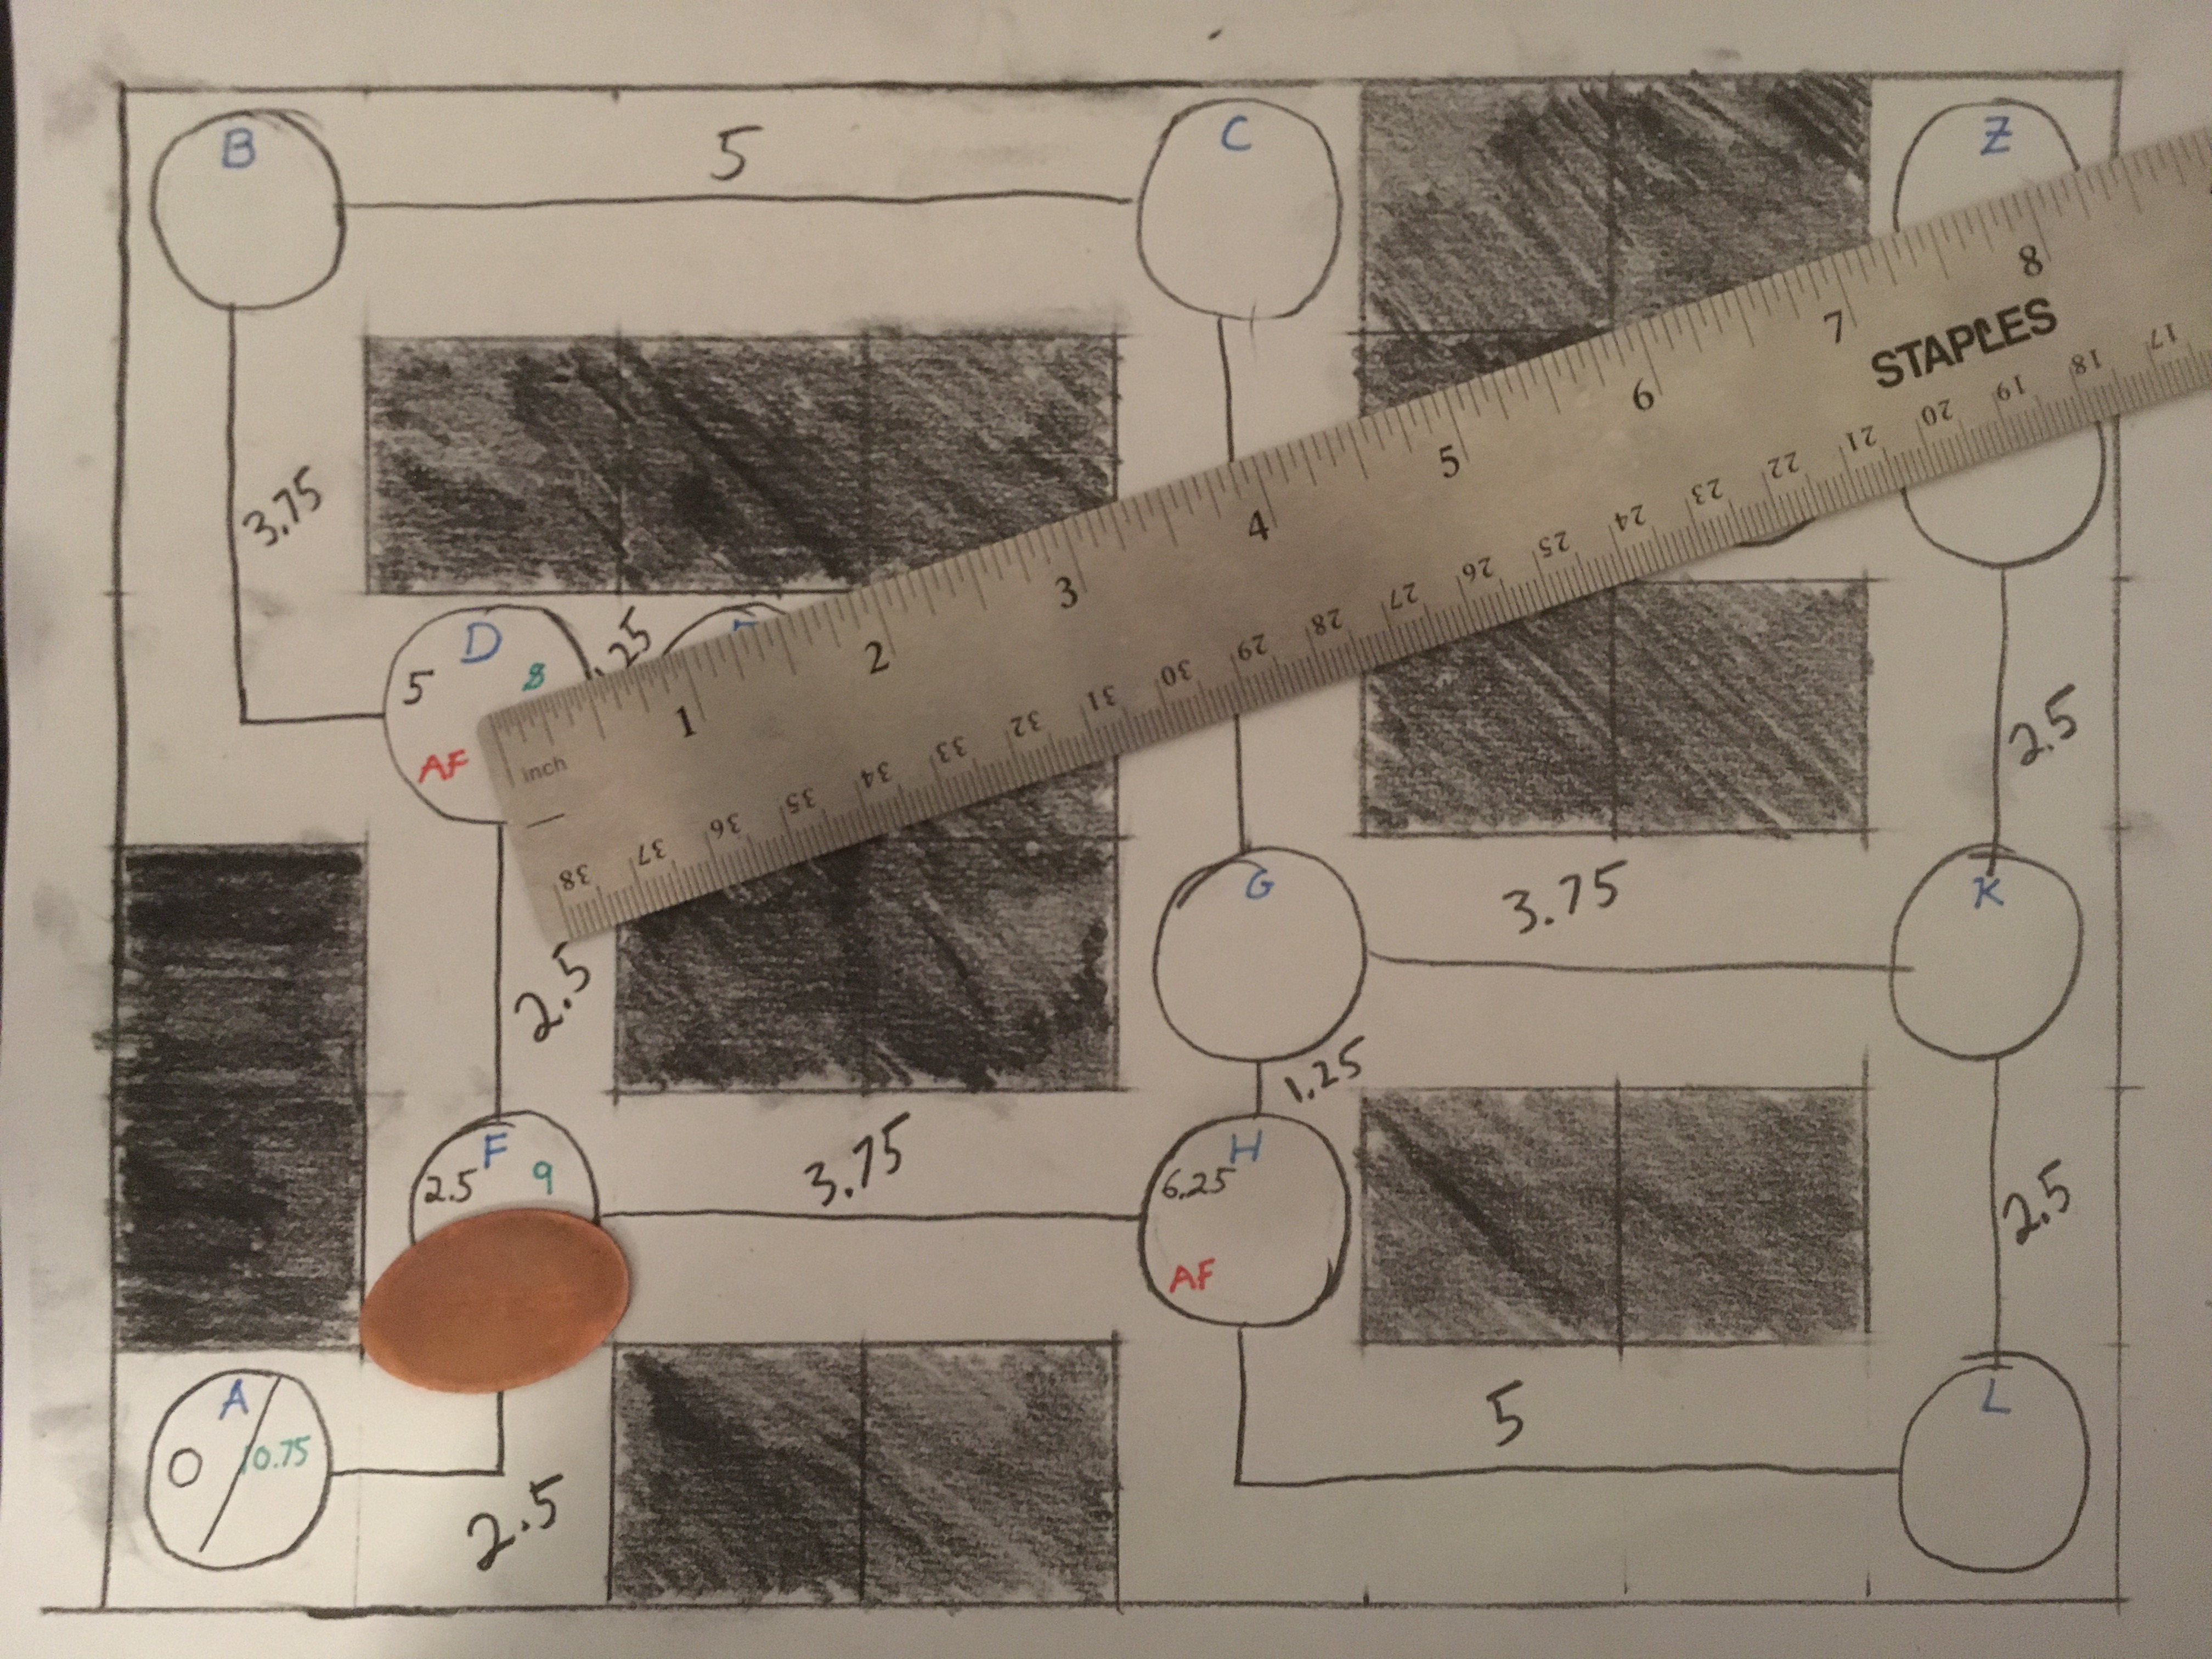 B
5
C
Z
3.75
D
5
8
AF
.25
1
2
3
4
5
6
7
8
STAPLES
inch
38
37
36
35
34
33
32
31
30
29
28
27
26
25
24
23
22
21
20
19
18
17
2.5
G
3.75
K
2.5
1.25
F
2.5
9
3.75
H
6.25
AF
2.5
A
0
10.75
2.5
5
L